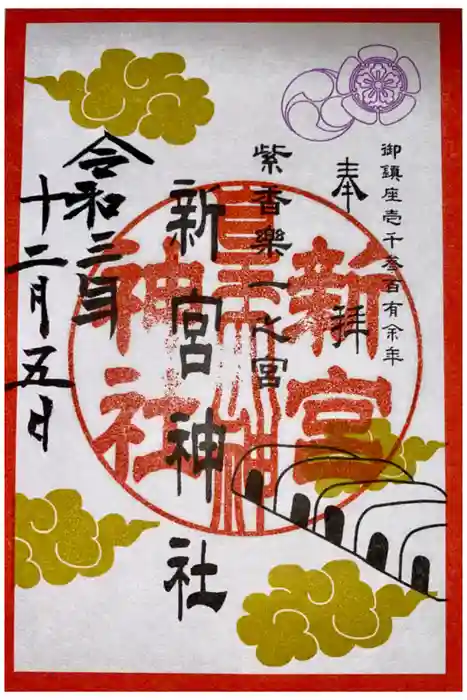 御鎮座壱千参百有余年
奉拝
紫香楽一之宮
新宮神社
新宮
神社
令和三年
十二月五日